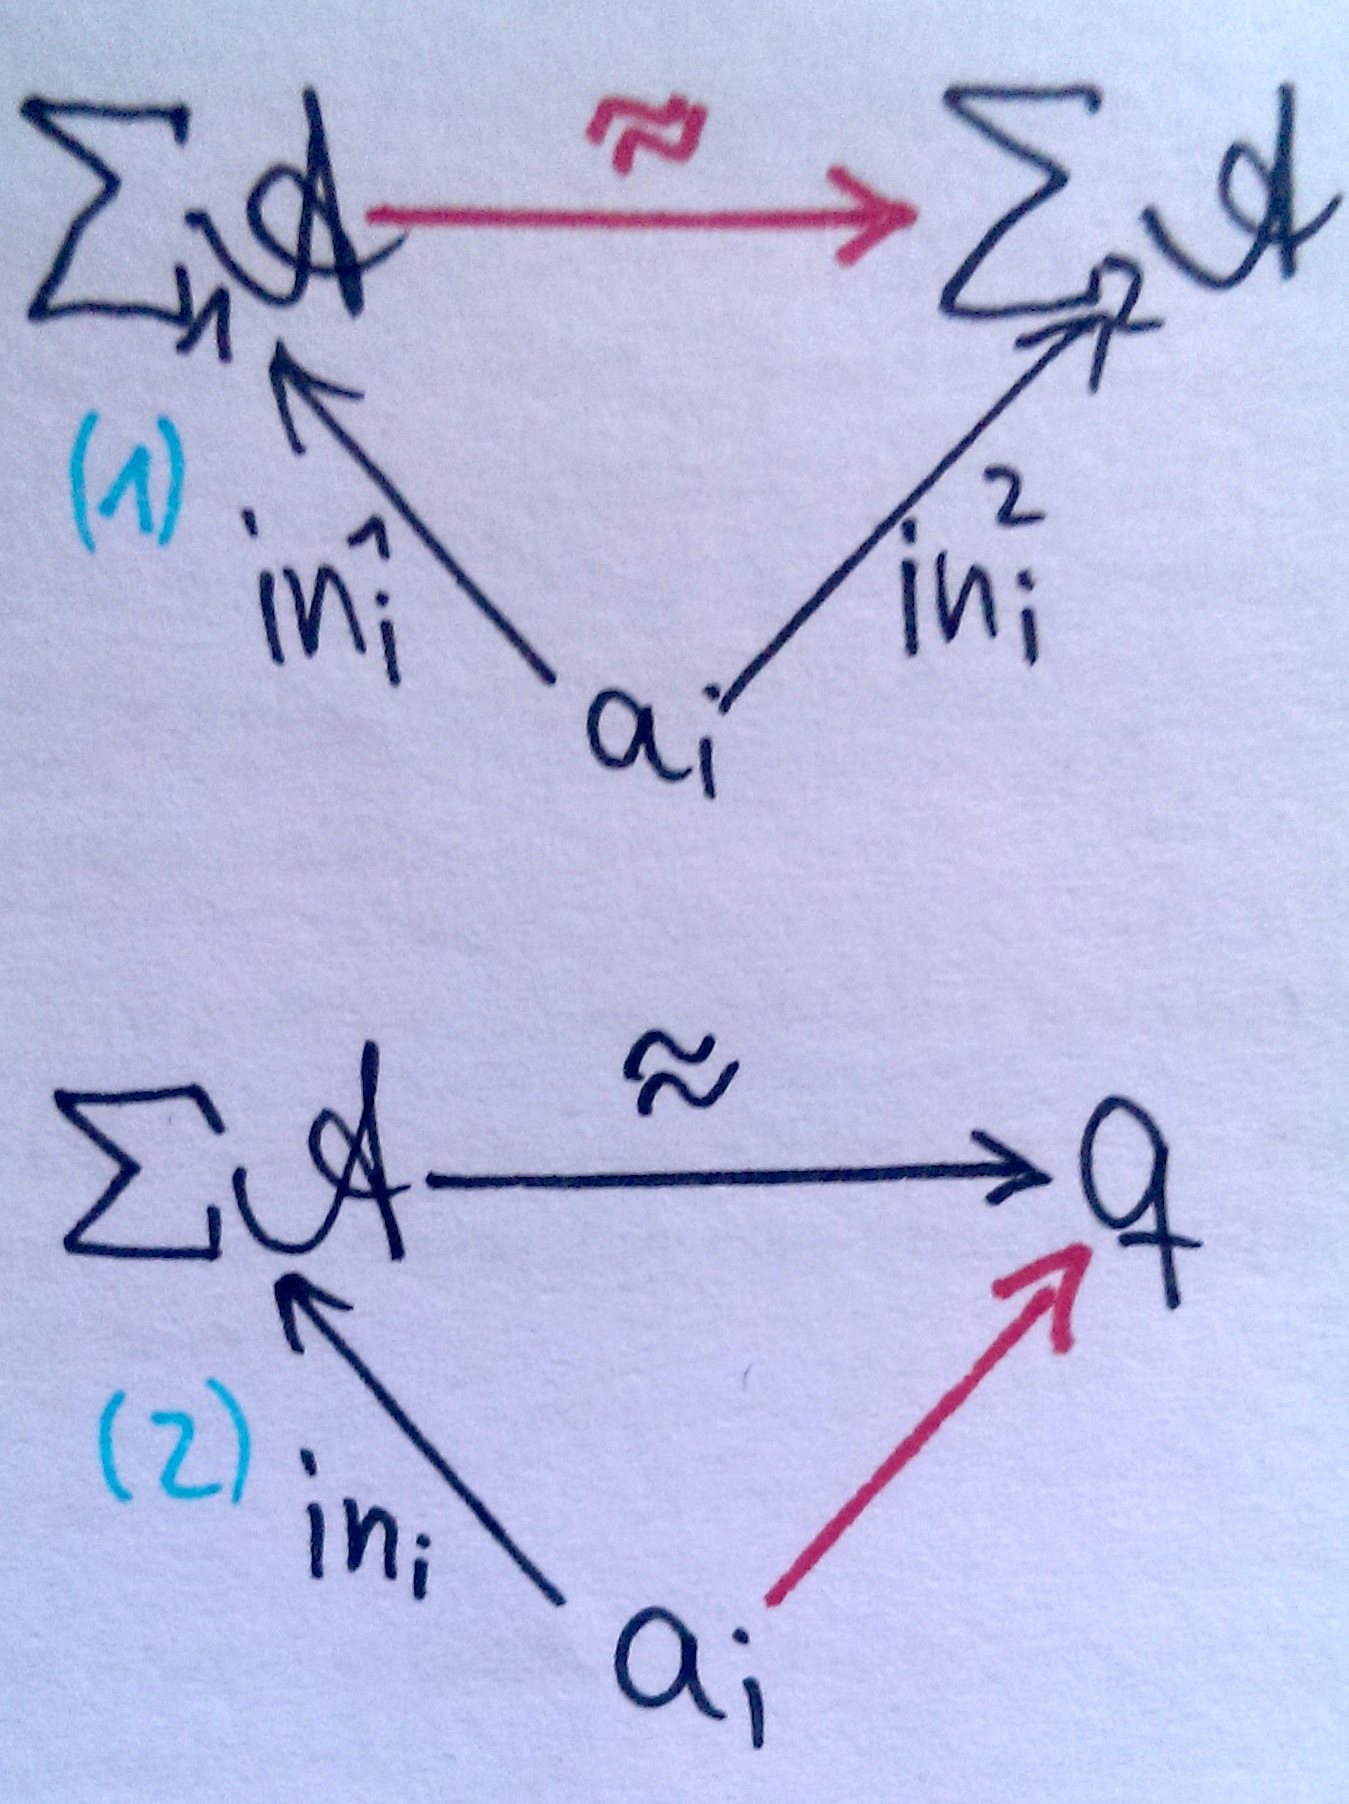 ≈
∑₁𝒜 ∑₂𝒜
(1) inᵢ¹ inᵢ²
aᵢ
≈
∑𝒜 q
(2) inᵢ
aᵢ